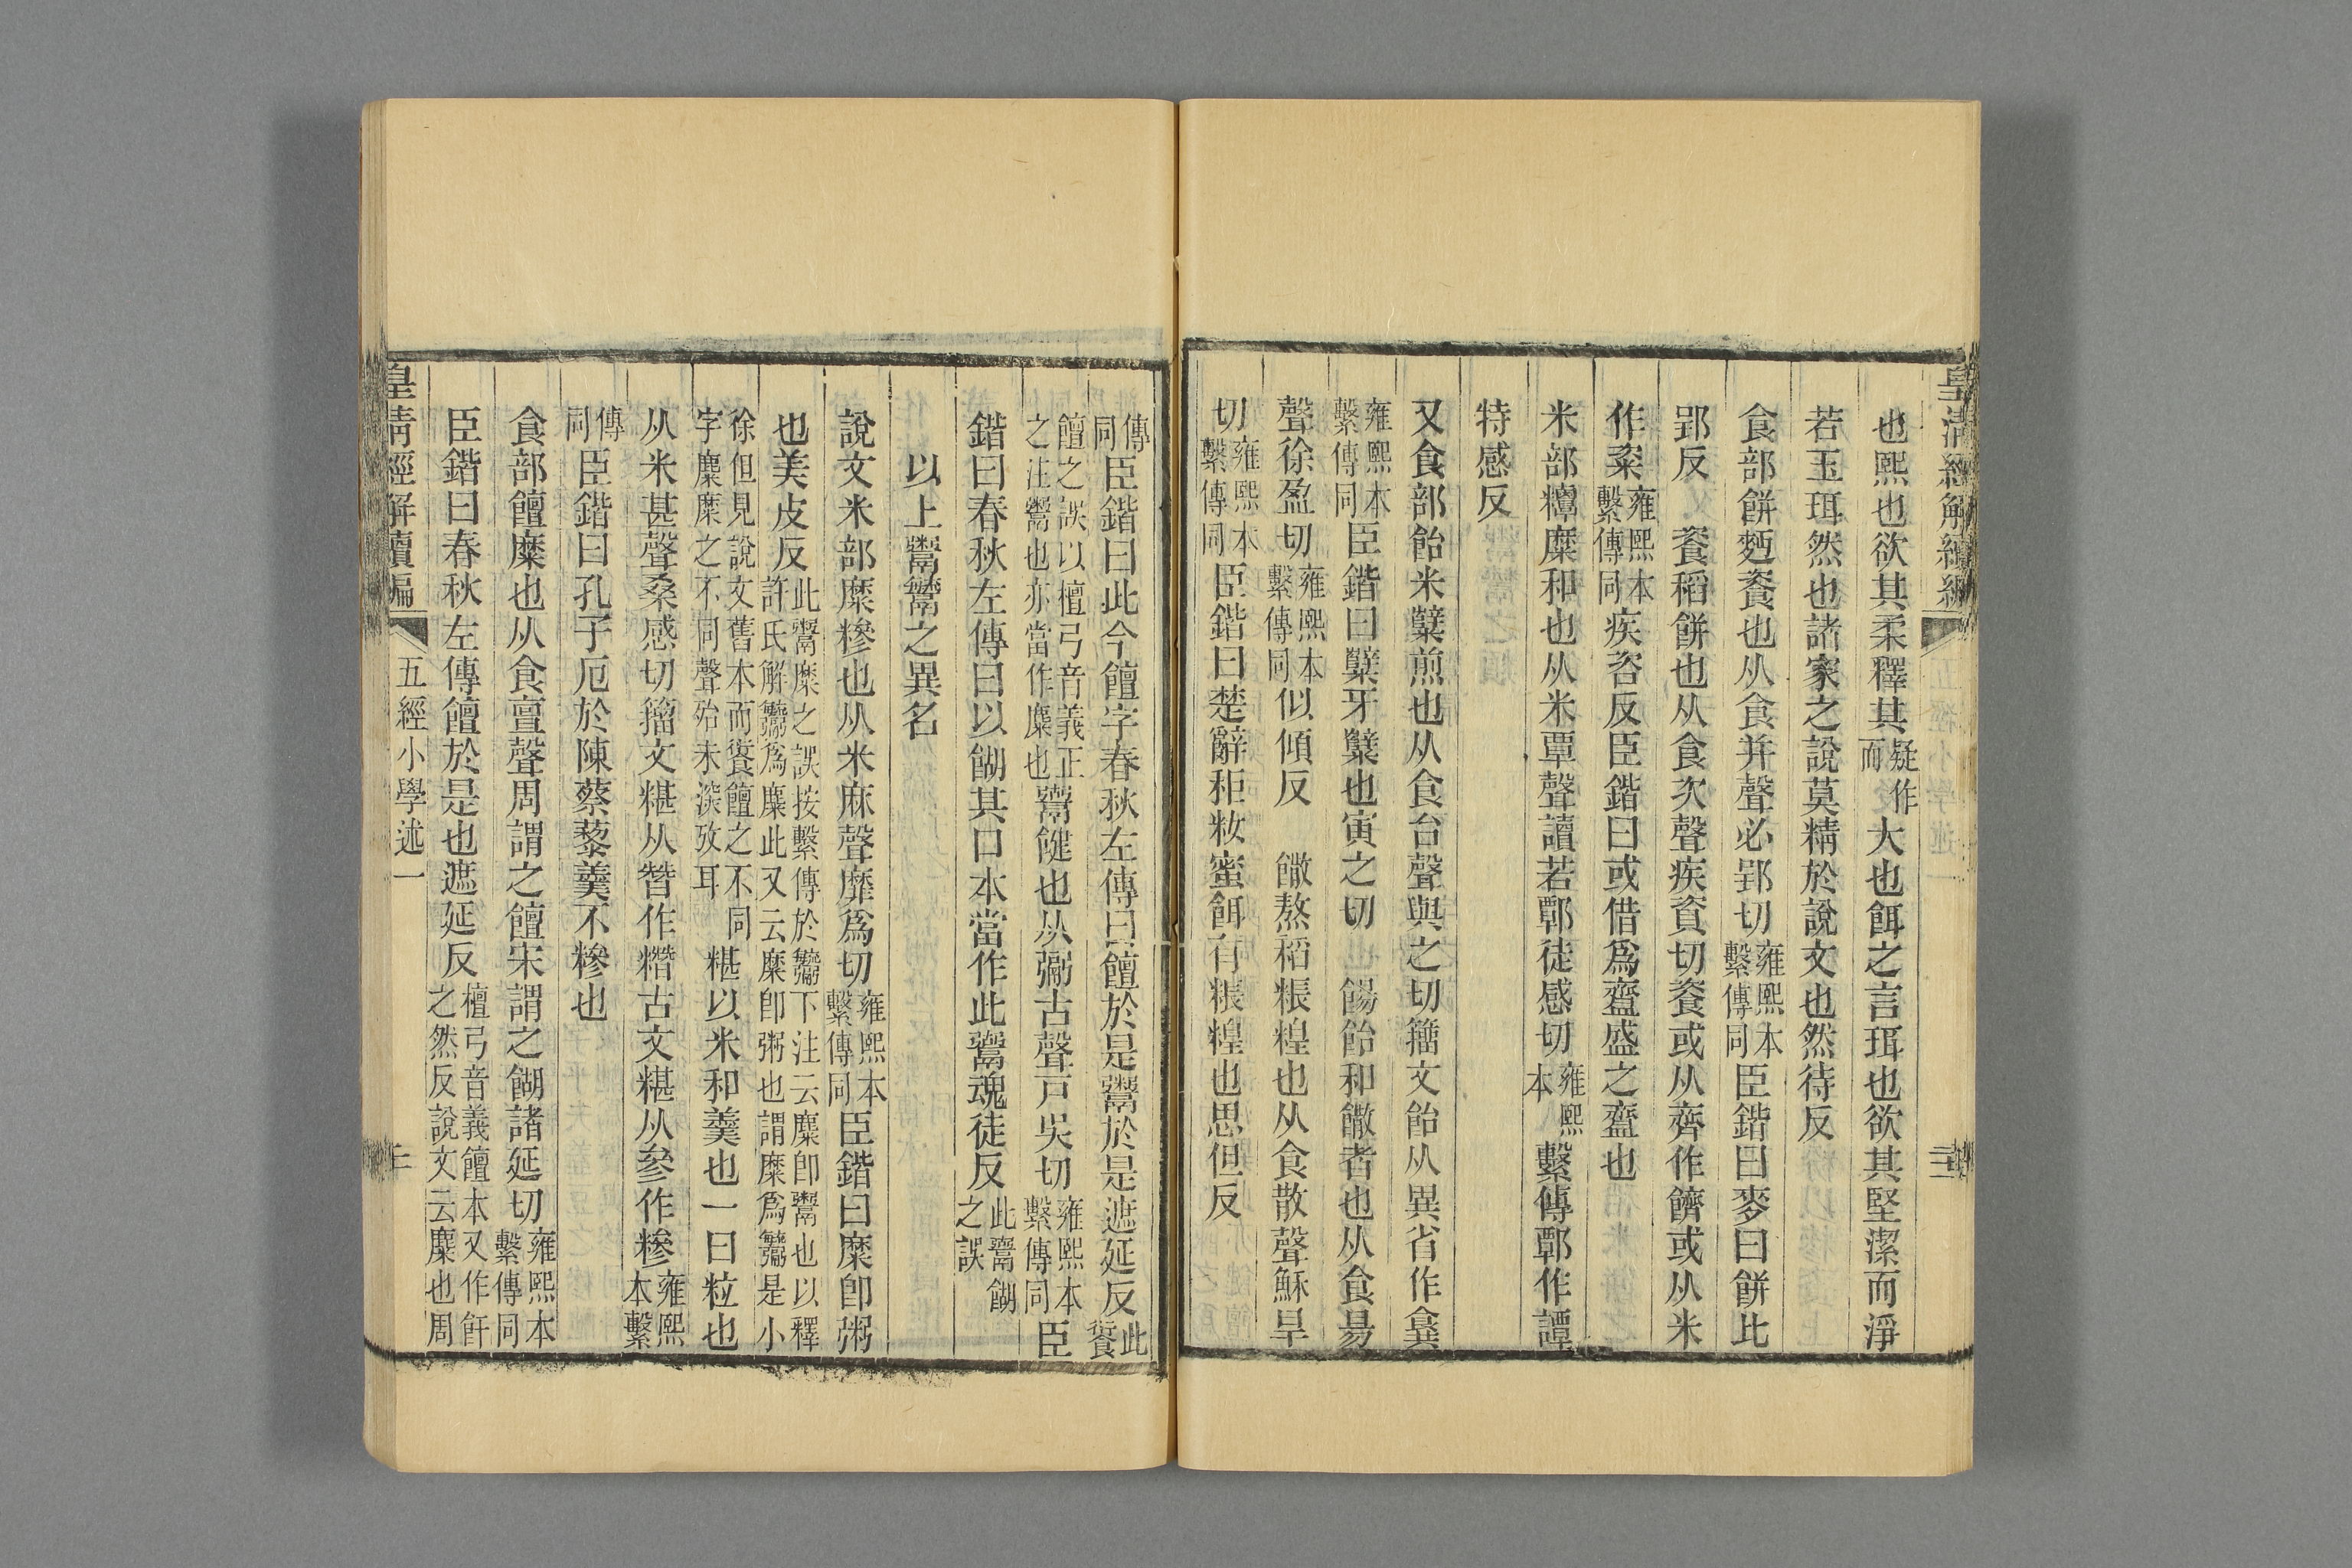 也熙也欲其柔釋其疑作而大也餌之言珥也欲其堅潔而淨
若玉珥然也諸家之說莫精於說文也然待反
食部餅麪餈也从食并聲必郢切雍熙本繫傳同臣鍇曰麥曰餅比
郢反　餈稻餅也从食次聲疾資切餈或从齊作餴或从米
作粢雍熙本繫傳同疾咨反臣鍇曰或借爲齍盛之齍也
米部糧糜和也从米覃聲讀若鄿徒感切雍熙本繫傳鄿作譚
特感反
又食部飴米糱煎也从食台聲與之切籀文飴从異省作
雍熙本繫傳同臣鍇曰糱牙糱也寅之切　餳飴和饊者也从食昜
聲徐盈切雍熙本繫傳同似傾反　饊熬稻粻䊗也从食散聲穌旱
切雍熙本繫傳同臣鍇曰楚辭秬籹蜜餌有粻䊗也思但反
傳同臣鍇曰此今饘字春秋左傳曰饘於是鬻於是遮延反此餰
饘之誤以檀弓音義正之注鬻也亦當作麋也鬻健也从䰜古聲戸吳切雍熙本繫傳同臣
鍇曰春秋左傳曰以餬其口本當作此鬻魂徒反此鬻餬之誤
以上鬻之異名
說文米部糜糝也从米麻聲靡爲切雍熙本繫傳同臣鍇曰糜卽粥
也美皮反此鬻糜之誤按繫傳於下注云麋卽鬻也以釋許氏解爲麋此又云糜卽粥也謂糜爲是小
徐但見說文舊本而餰饘之不同字麋糜之不同聲殆未深攷耳　糂以米和羹也一曰粒也
从米甚聲桑感切籀文糂从朁作糣古文糂从參作糝雍熙本繫
傳同臣鍇曰孔子厄於陳蔡藜羹不糝也
食部饘糜也从食亶聲周謂之饘宋謂之餬諸延切雍熙本繫傳同
臣鍇曰春秋左傳饘於是也遮延反檀弓音義饘本又作飦之然反說文云麋也周
皇清經解續編　五經小學述一